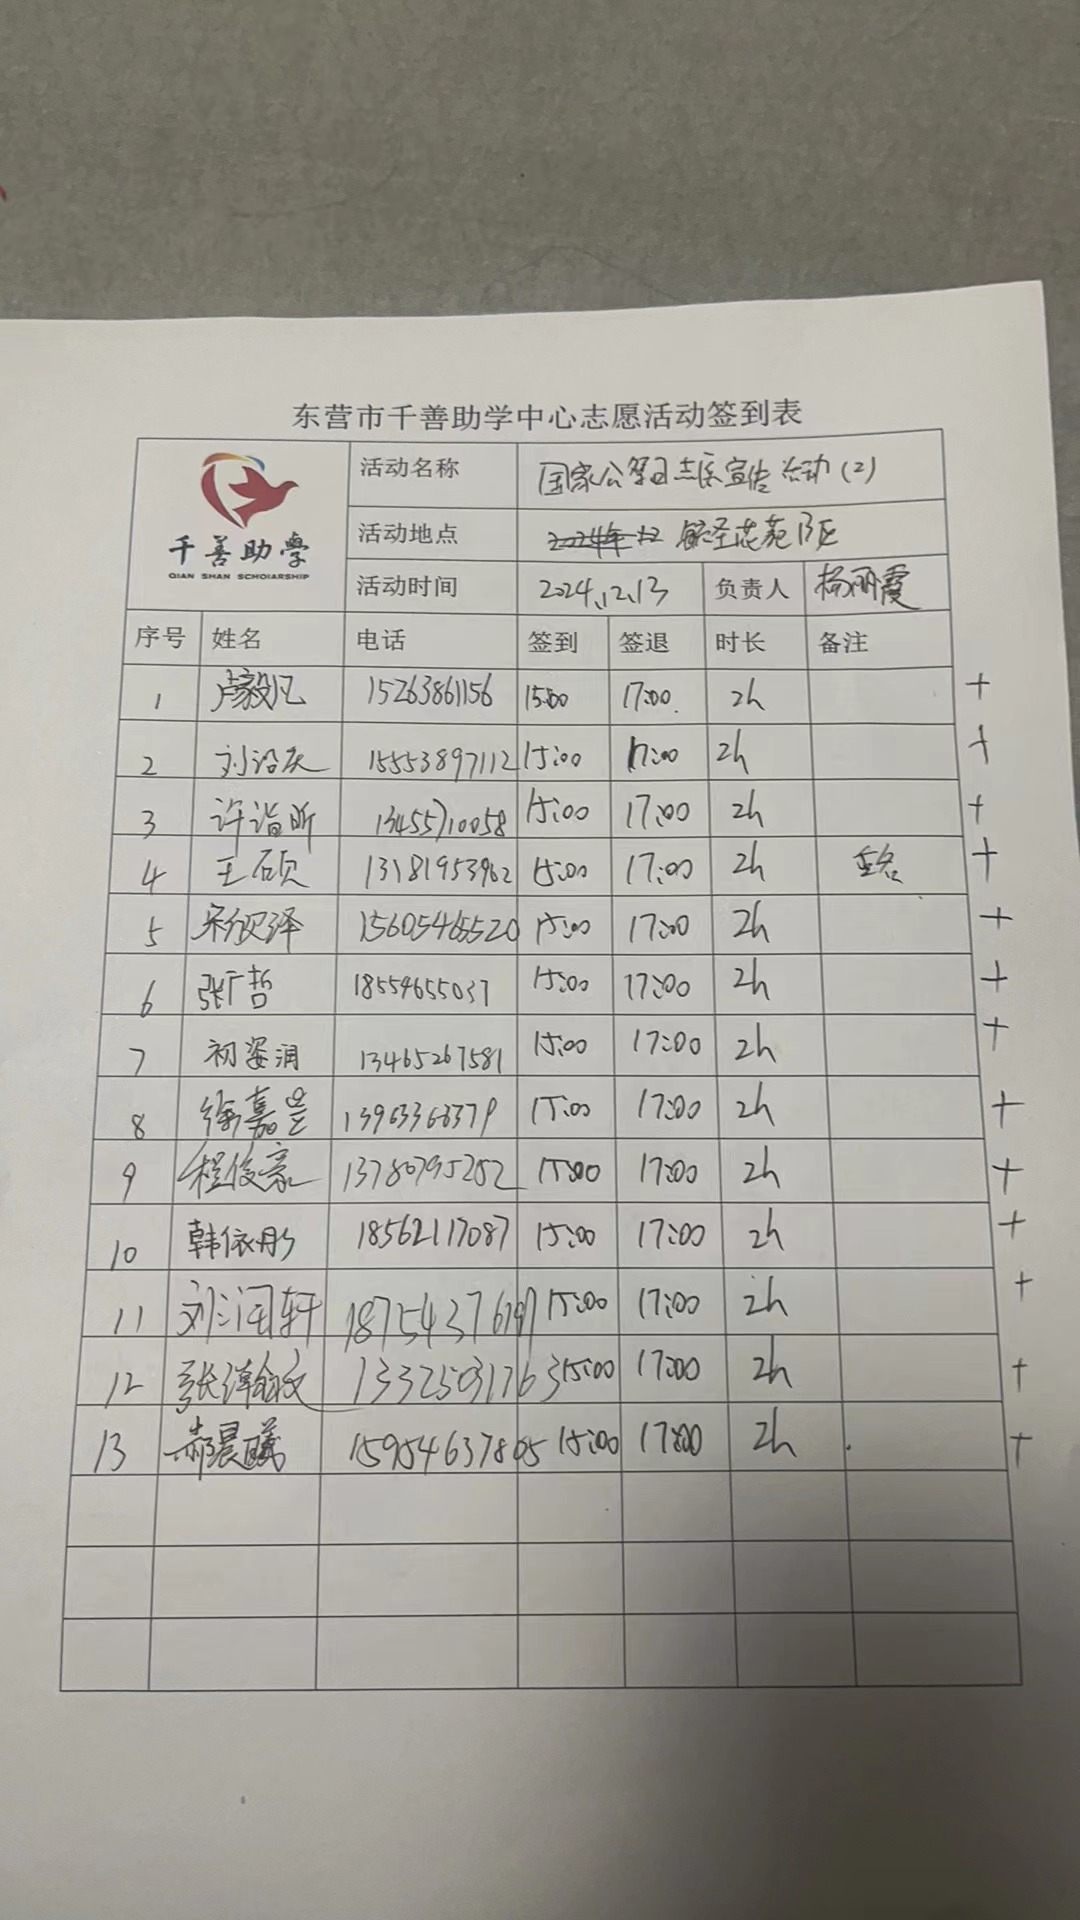 东营市千善助学中心志愿活动签到表
千善助學
QIAN SHAN SCHOIARSHIP
活动名称 国家公祭日志愿宣传活动(2)
活动地点
活动时间 2024.12.13 负责人 杨丽霞
序号 姓名 电话 签到 签退 时长 备注
1 卢毅凡 15263861156 15:00 17:00 2h +
2 15553897112 15:00 17:00 2h +
3 许诣昕 13455710058 15:00 17:00 2h +
4 王硕 13181953962 15:00 17:00 2h 重名 +
5 宋钦泽 15605465520 15:00 17:00 2h +
6 张广哲 18554655037 15:00 17:00 2h +
7 初姿润 13465267581 15:00 17:00 2h +
8 徐嘉昱 15:00 17:00 2h +
9 程俊豪 13780795252 15:00 17:00 2h +
10 韩依彤 18562117087 15:00 17:00 2h +
11 刘润轩 15:00 17:00 2h +
12 张瀚文 13325031763 15:00 17:00 2h +
13 郝晨曦 15954637805 15:00 17:00 2h +